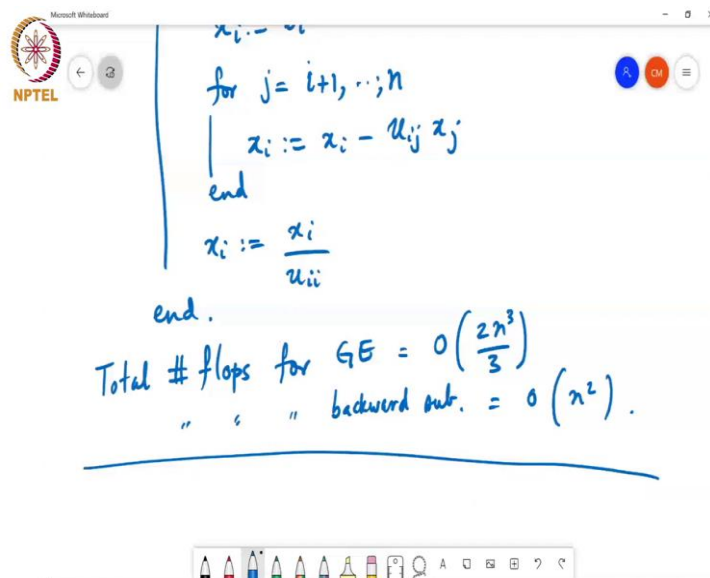 Microsoft Whiteboard
NPTEL
CM
for j = i+1, ..., n
x_i := x_i - u_ij x_j
end
x_i := x_i / u_ii
end.
Total # flops for GE = O(2n^3/3)
" " " backward sub. = O(n^2).
A